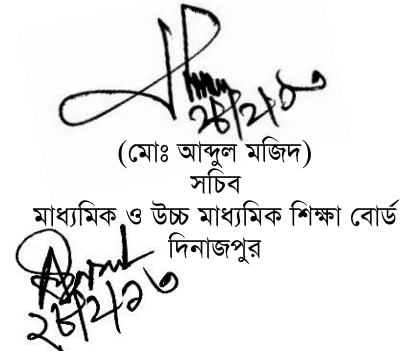 (মোঃ আব্দুল মজিদ)
সচিব
মাধ্যমিক ও উচ্চ মাধ্যমিক শিক্ষা বোর্ড
দিনাজপুর